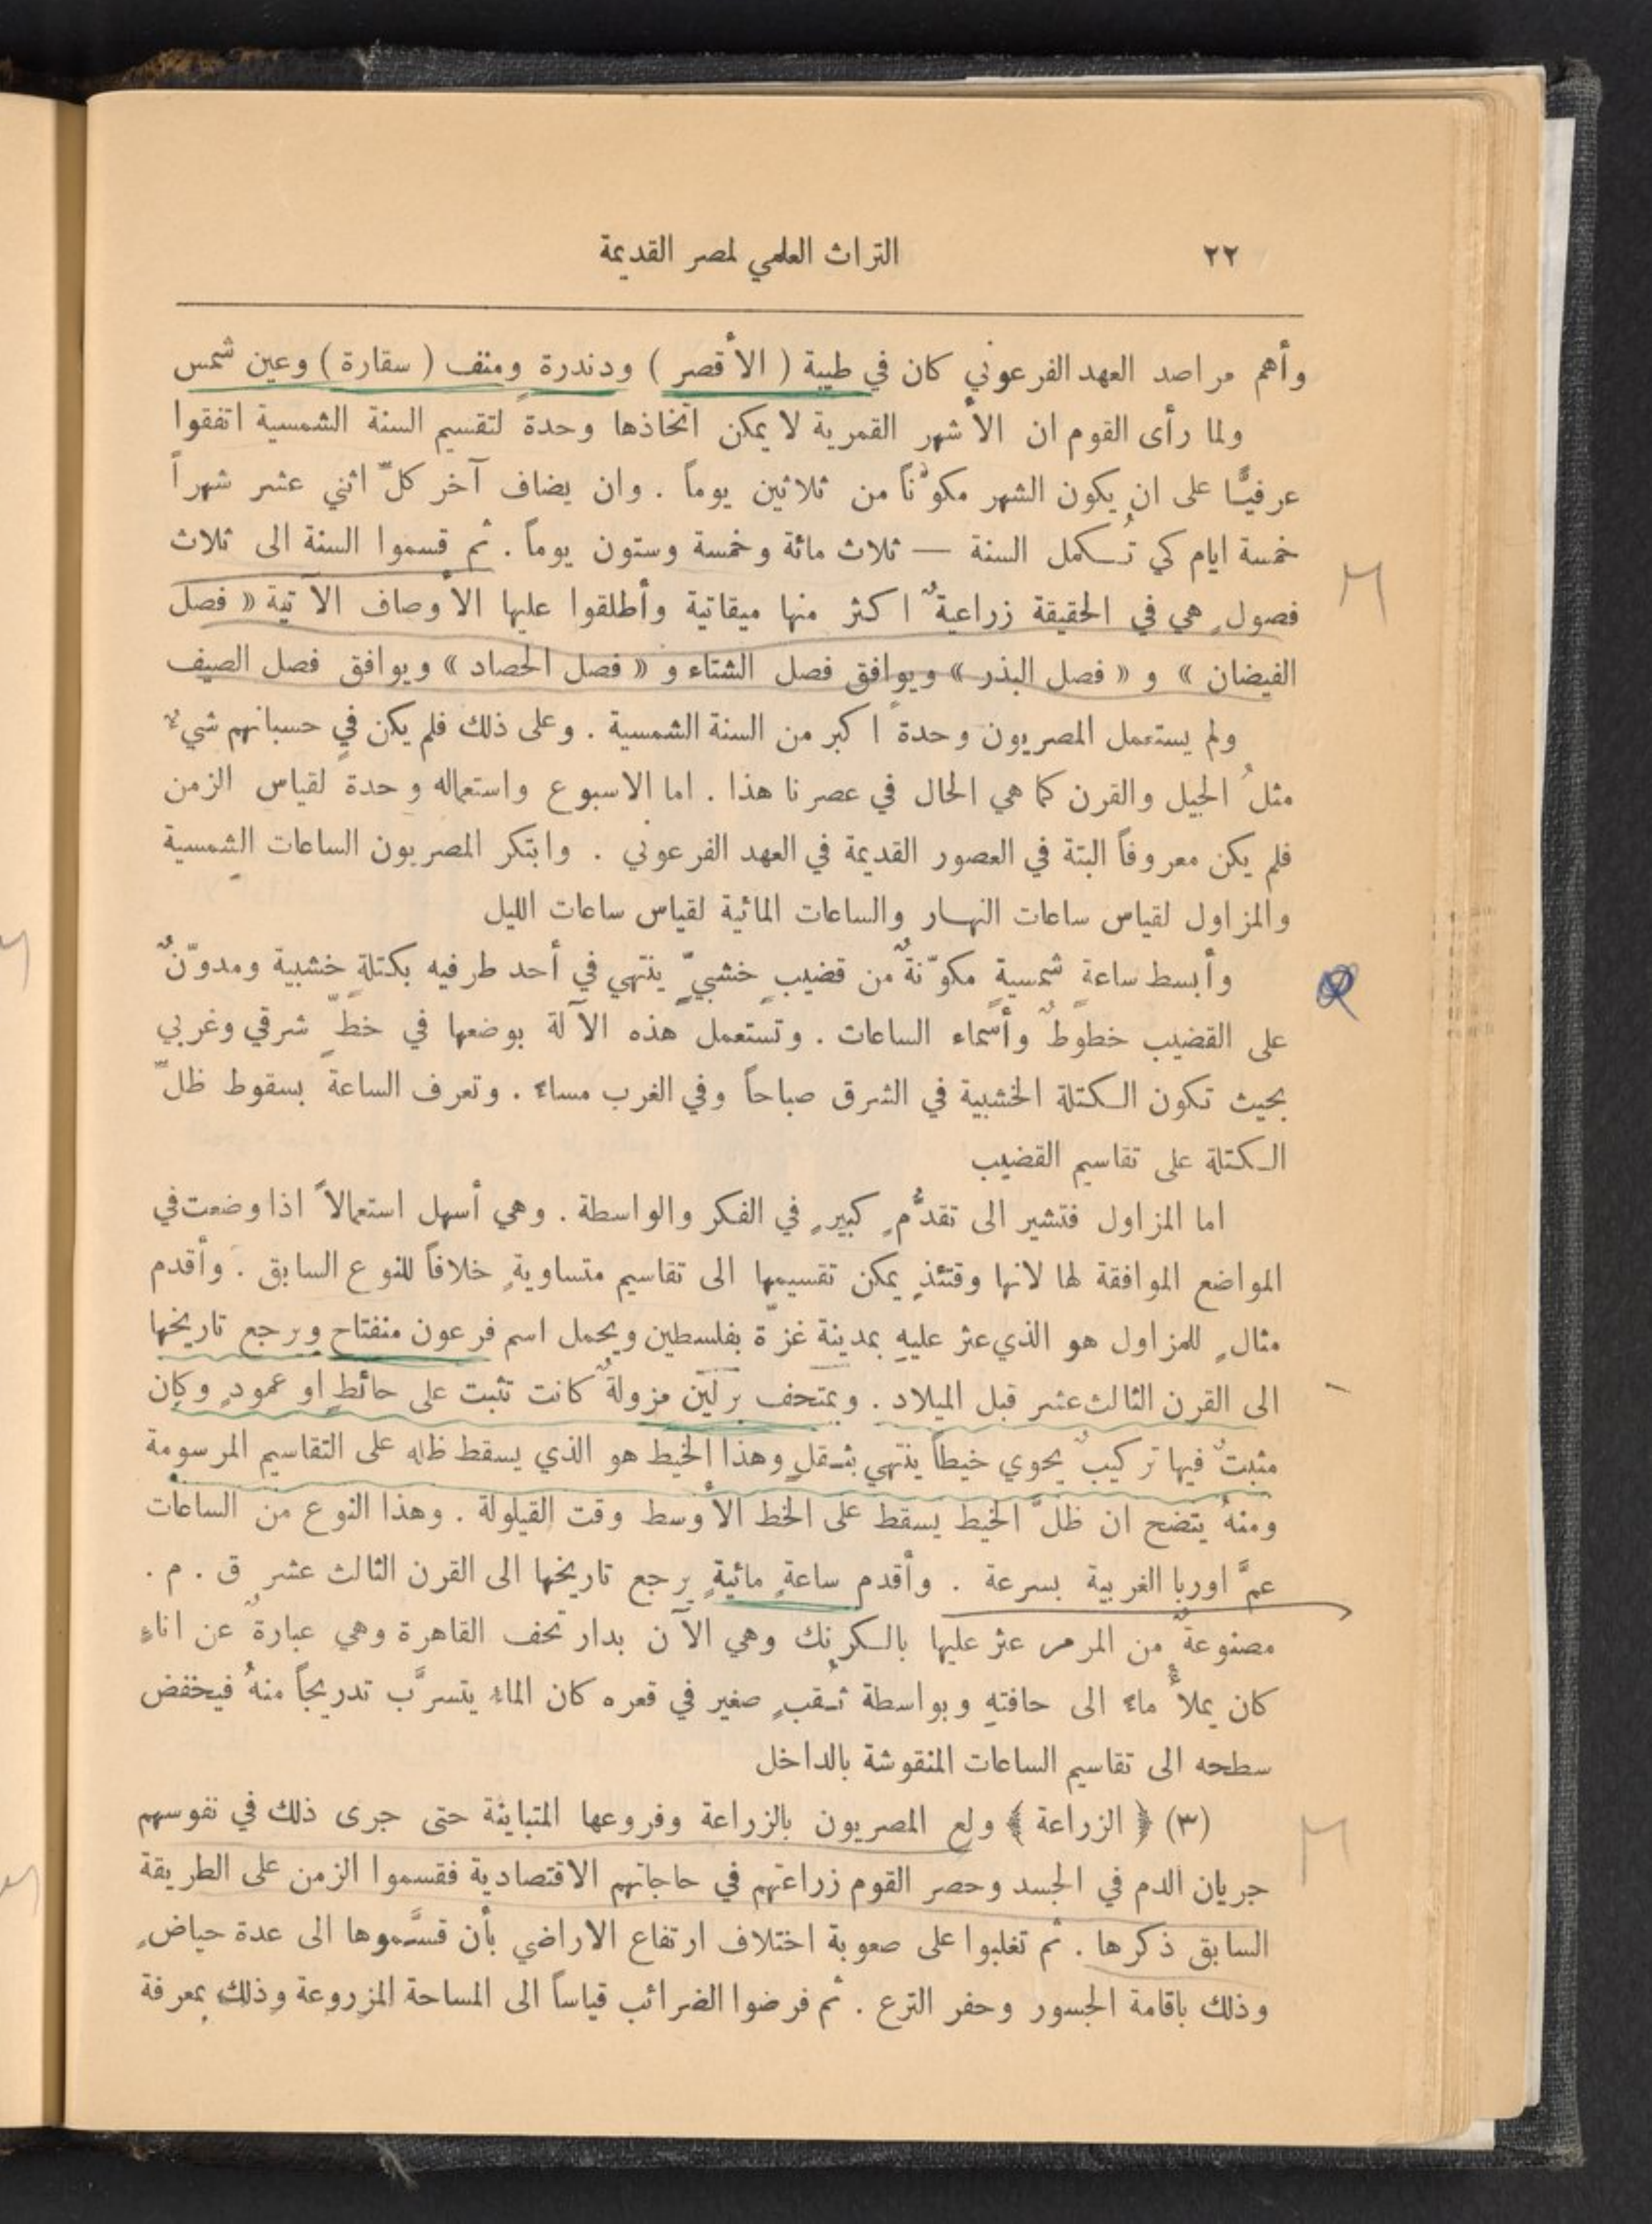 ٢٢
التراث العلمي لمصر القديمة
وأهم مراصد العهد الفرعوني كان في طيبة ( الأقصر ) ودندرة ومنف ( سقارة ) وعين شمس
ولما رأى القوم ان الأشهر القمرية لا يمكن اتخاذها وحدة لتقسيم السنة الشمسية اتفقوا
عرفيًّا على ان يكون الشهر مكوَّناً من ثلاثين يوماً . وان يضاف آخر كلّ اثني عشر شهراً
خمسة ايام كي تُكمل السنة — ثلاث مائة وخمسة وستون يوماً . ثم قسموا السنة الى ثلاث
فصولٍ هي في الحقيقة زراعيةٌ اكثر منها ميقاتية وأطلقوا عليها الأوصاف الآتية « فصل
الفيضان » و « فصل البذر » ويوافق فصل الشتاء و « فصل الحصاد » ويوافق فصل الصيف
ولم يستعمل المصريون وحدة اكبر من السنة الشمسية . وعلى ذلك فلم يكن في حسبانهم شيءٌ
مثلُ الجيل والقرن كما هي الحال في عصرنا هذا . اما الاسبوع واستعماله وحدة لقياس الزمن
فلم يكن معروفاً البتة في العصور القديمة في العهد الفرعوني . وابتكر المصريون الساعات الشمسية
والمزاول لقياس ساعات النهار والساعات المائية لقياس ساعات الليل
وأبسط ساعة شمسيةٍ مكوّنةٌ من قضيبٍ خشبيّ ينتهي في أحد طرفيه بكتلةٍ خشبية ومدوّنٌ
على القضيب خطوطٌ وأسماء الساعات . وتستعمل هذه الآلة بوضعها في خطّ شرقي وغربي
بحيث تكون الكتلة الخشبية في الشرق صباحاً وفي الغرب مساءً . وتعرف الساعة بسقوط ظلّ
الكتلة على تقاسيم القضيب
اما المزاول فتشير الى تقدُّمٍ كبيرٍ في الفكر والواسطة . وهي أسهل استعمالاً اذا وضعت في
المواضع الموافقة لها لانها وقتئذٍ يمكن تقسيمها الى تقاسيم متساويةٍ خلافاً للنوع السابق . وأقدم
مثالٍ للمزاول هو الذي عثر عليهِ بمدينة غزّة بفلسطين ويحمل اسم فرعون منفتاح ويرجع تاريخها
الى القرن الثالث عشر قبل الميلاد . وبمتحف برلين مزولةٌ كانت تثبت على حائطٍ او عمودٍ وكان
مثبتٌ فيها تركيبٌ يحوي خيطاً ينتهي بثـقلٍ وهذا الخيط هو الذي يسقط ظله على التقاسيم المرسومة
ومنهُ يتضح ان ظلَّ الخيط يسقط على الخط الأوسط وقت القيلولة . وهذا النوع من الساعات
عمَّ اوربا الغربية بسرعة . وأقدم ساعةٍ مائيةٍ يرجع تاريخها الى القرن الثالث عشر ق . م .
مصنوعةٌ من المرمر عثر عليها بالكرنك وهي الآن بدار تحف القاهرة وهي عبارةٌ عن اناءٍ
كان يملأُ ماءً الى حافتهِ وبواسطة ثُـقبٍ صغير في قعره كان الماءُ يتسرَّب تدريجاً منهُ فيخفض
سطحه الى تقاسيم الساعات المنقوشة بالداخل
(٣) ﴿ الزراعة ﴾ ولع المصريون بالزراعة وفروعها المتباينة حتى جرى ذلك في نفوسهم
جريان الدم في الجسد وحصر القوم زراعتهم في حاجاتهم الاقتصادية فقسموا الزمن على الطريقة
السابق ذكرها . ثم تغلبوا على صعوبة اختلاف ارتفاع الاراضي بأن قسَّموها الى عدة حياضٍ
وذلك باقامة الجسور وحفر الترع . ثم فرضوا الضرائب قياساً الى المساحة المزروعة وذلك بمعرفة